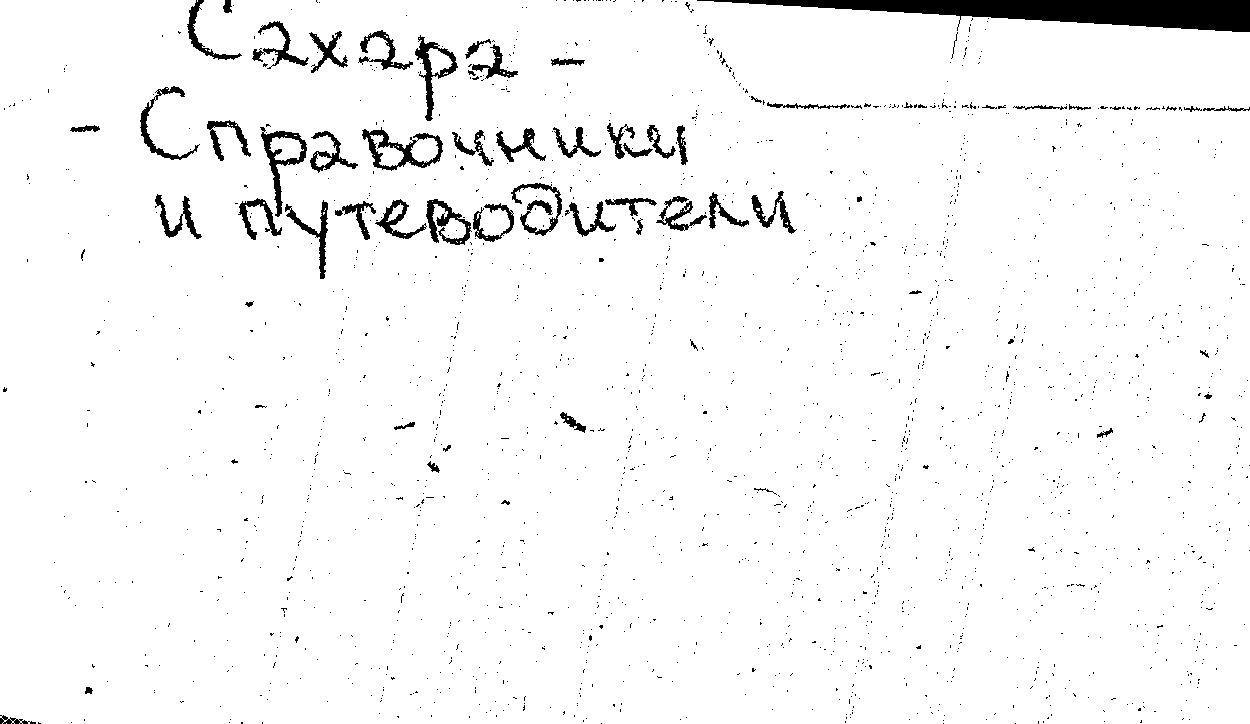 Сахара -
- Справочники
и путеводители